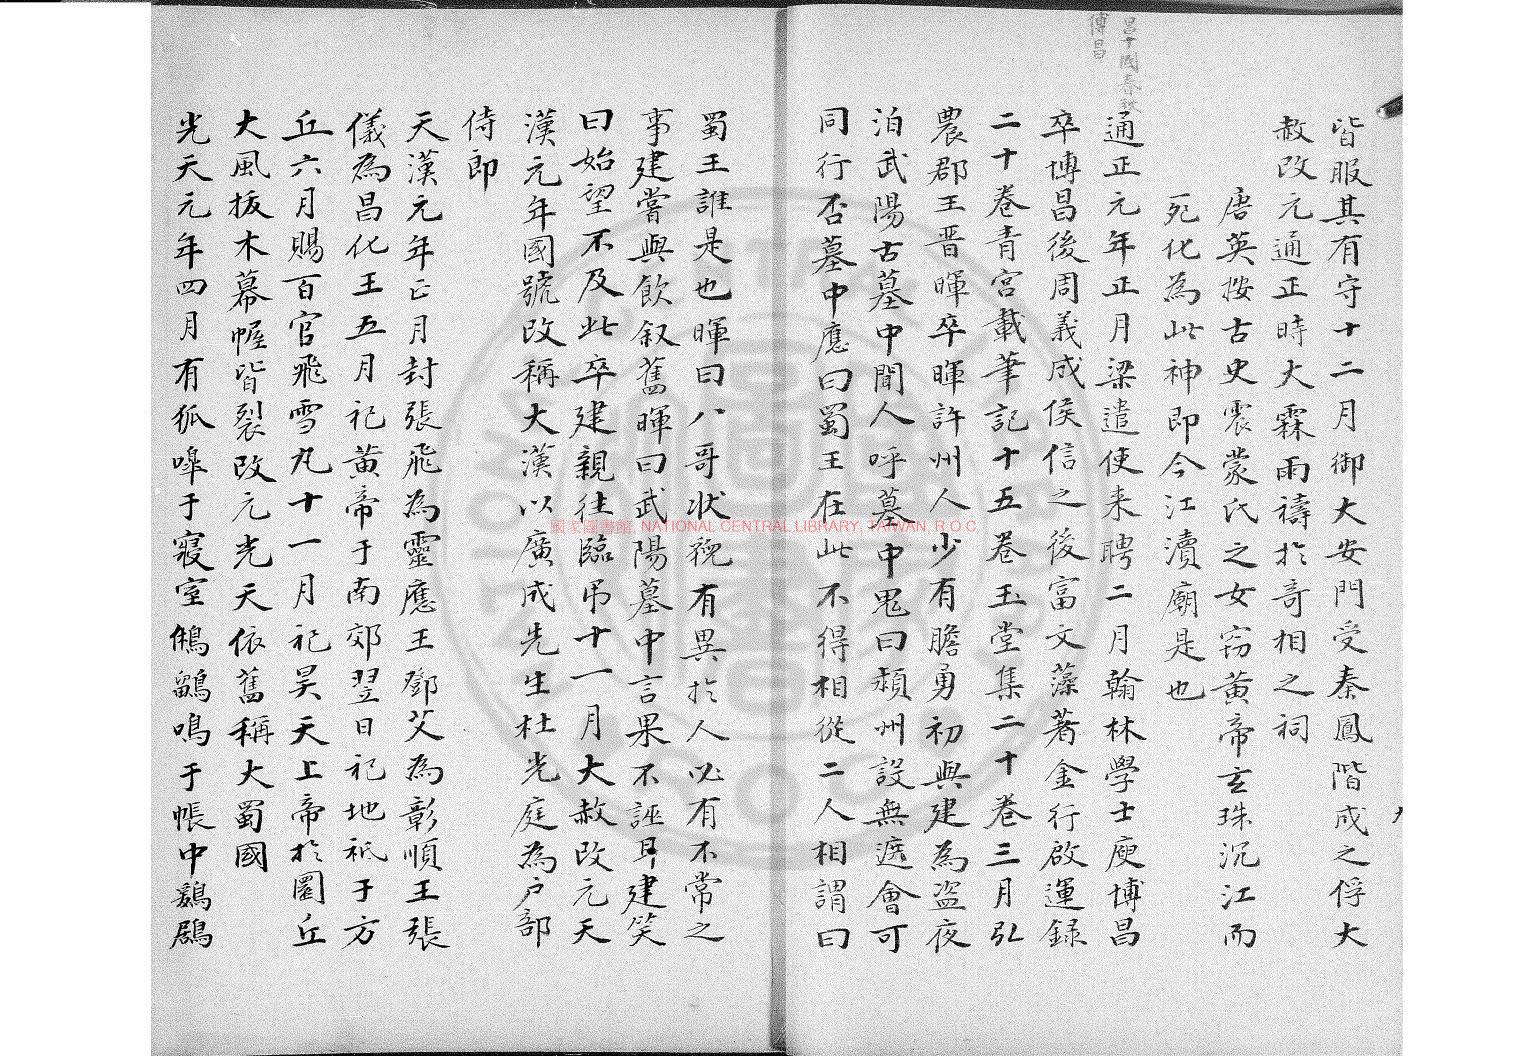 皆服其有守十二月御大安門受秦鳳階成之俘大
赦改元通正時大霖雨禱於奇相之祠
唐英按古史震蒙氏之女窃黄帝玄珠沉江而
死化為此神即今江瀆廟是也
通正元年正月梁遣使来聘二月翰林學士庾博昌
卒博昌後周義成侯信之後富文藻著金行啟運録
二十卷青宮載筆記十五卷玉堂集二十卷三月弘
農郡王晋暉卒暉許州人少有膽勇初與建為盜夜
泊武陽古墓中聞人呼墓中鬼曰潁州設無遮會可
同行否墓中應曰蜀王在此不得相從二人相謂曰
蜀王誰是也暉曰八哥状貌有異於人必有不常之
事建嘗與飲叙舊暉曰武陽墓中言果不誣耳建笑
曰始望不及此卒建親往臨吊十一月大赦改元天
漢元年國號改稱大漢以廣成先生杜光庭為户部
侍郎
天漢元年正月封張飛為靈應王鄧艾為彰順王張
儀為昌化王五月祀黄帝于南郊翌日祀地祇于方
丘六月賜百官飛雪丸十一月祀昊天上帝於圜丘
大風抜木幕幄皆裂改元光天依舊稱大蜀國
光天元年四月有狐嘷于寢室鵂鶹鳴于帳中鷄鵾
昌十國春秋
傳昌
國家圖書館, NATIONAL CENTRAL LIBRARY, TAIWAN, R.O.C
NATIONAL CENTRAL LIBRARY
R.O.C.